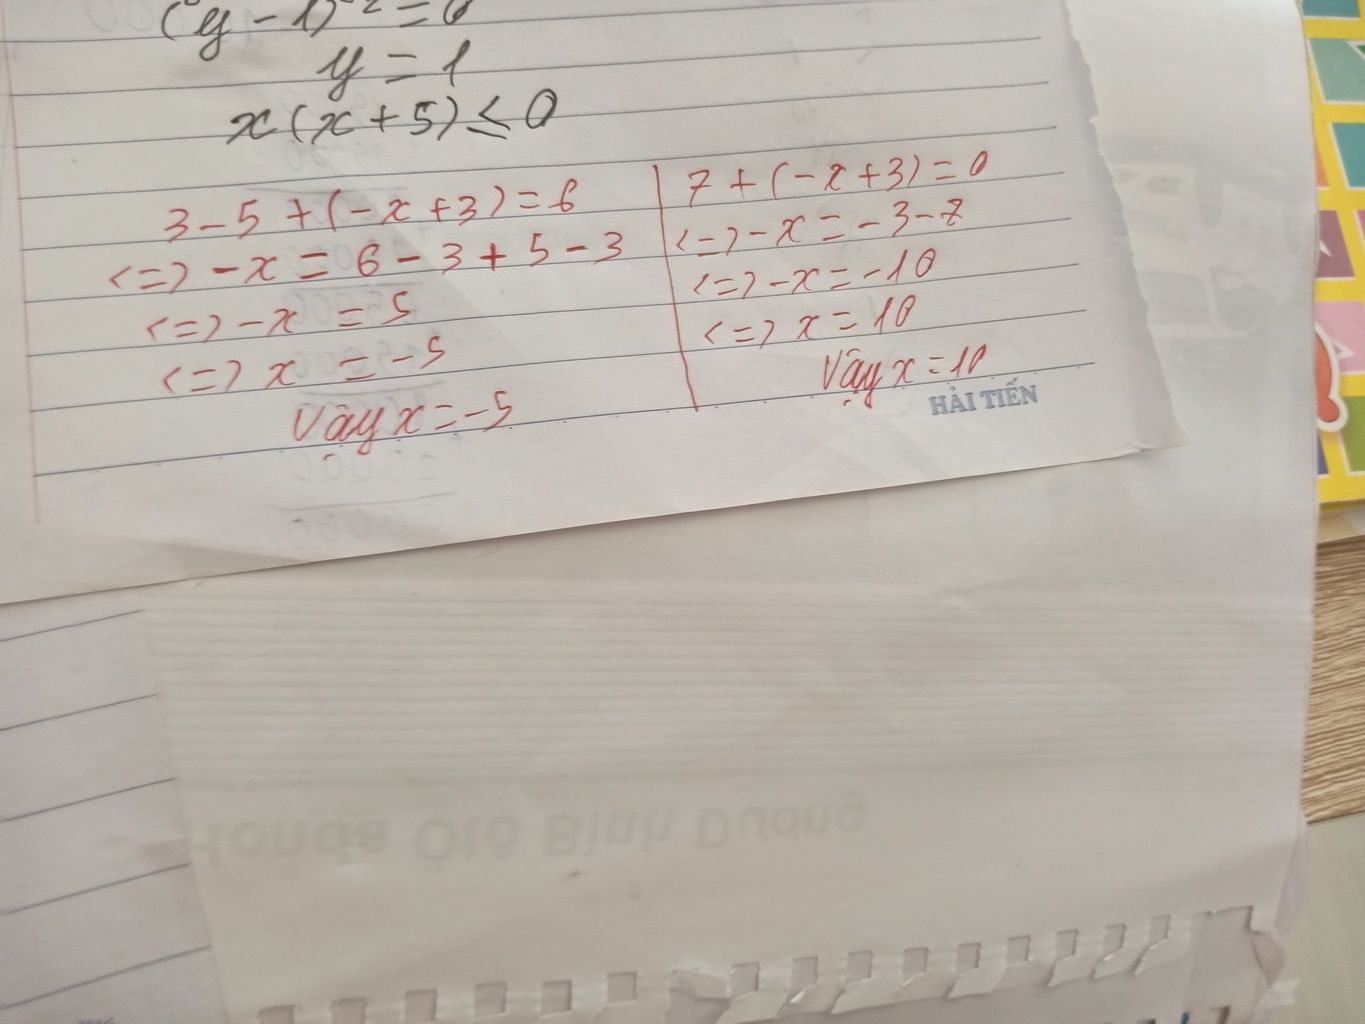 (y - 1)² = 0
y = 1
x(x + 5) ≤ 0
3 - 5 + (-x + 3) = 6
<=> -x = 6 - 3 + 5 - 3
<=> -x = 5
<=> x = -5
Vậy x = -5
7 + (-x + 3) = 0
<=> -x = -3 - 7
<=> -x = -10
<=> x = 10
Vậy x = 10
HẢI TIẾN
Honda Ôtô Bình Dương